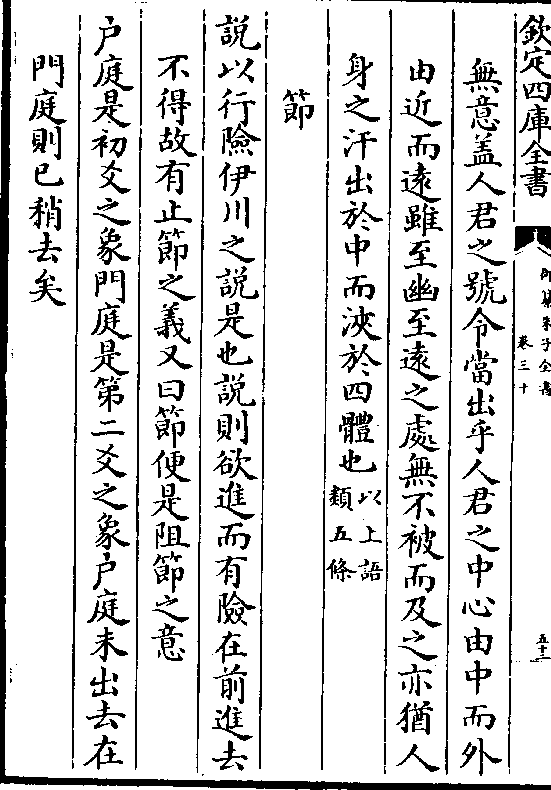 欽定四庫全書
御纂朱子全書
卷三十
五十二
無意盖人君之號令當出乎人君之中心由中而外
由近而遠雖至幽至遠之處無不被而及之亦猶人
身之汗出於中而浹於四體也以上語
類五條
節
説以行險伊川之説是也説則欲進而有險在前進去
不得故有止節之義又曰節便是阻節之意
户庭是初爻之象門庭是第二爻之象户庭未出去在
門庭則已稍去矣